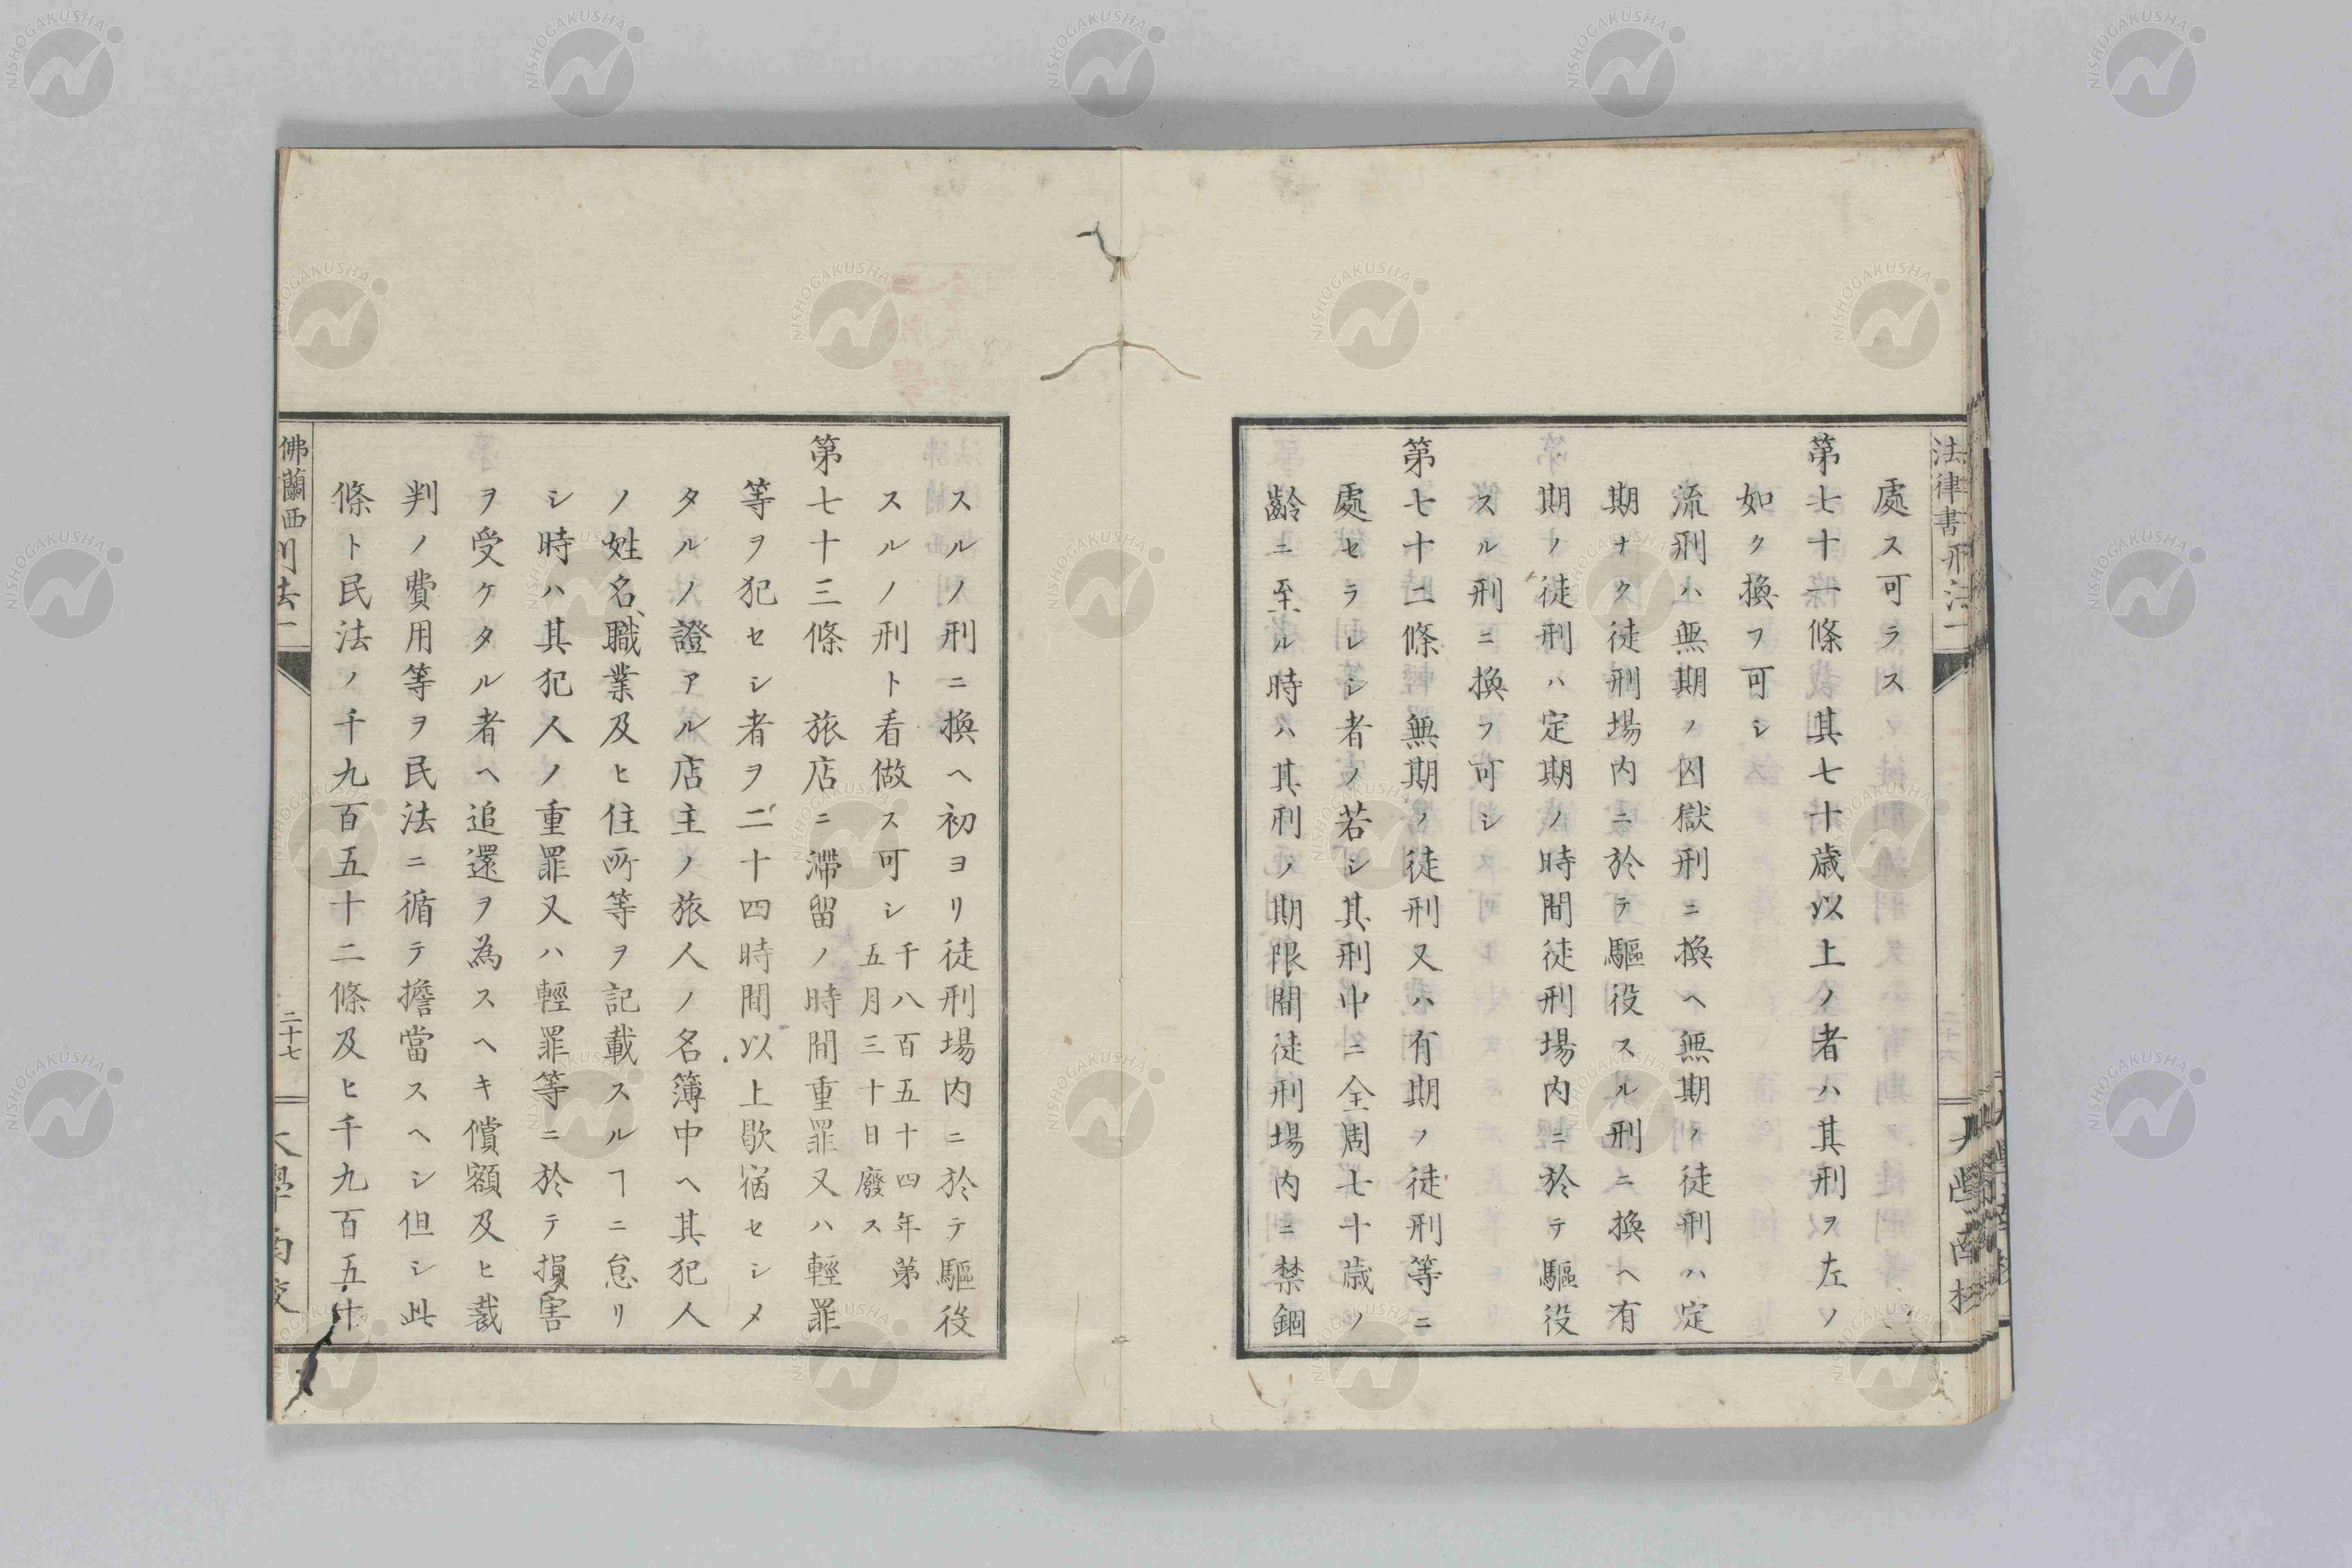 法律書刑法一
處ス可ラス
第七十一條其七十歳以上ノ者ハ其刑ヲ左ノ
如ク換フ可シ
流刑ハ無期ノ囚獄刑ニ換ヘ無期ノ徒刑ハ定
期ナク徒刑場内ニ於テ驅役スル刑ニ換ヘ有
期ノ徒刑ハ定期ノ時間徒刑場内ニ於テ驅役
スル刑ニ換フ可シ
第七十二條無期ノ徒刑又ハ有期ノ徒刑等ニ
處セラレシ者ノ若シ其刑中ニ全周七十歳ノ
齡ニ至ル時ハ其刑ノ期限間徒刑場内ニ禁錮
スルノ刑ニ換ヘ初ヨリ徒刑場内ニ於テ驅役
スルノ刑ト看做ス可シ千八百五十四年第
五月三十日廢ス
第七十三條 旅店ニ滯留ノ時間重罪又ハ輕罪
等ヲ犯セシ者ヲ二十四時間以上歇宿セシメ
タルノ證アル店主ノ旅人ノ名簿中ヘ其犯人
ノ姓名、職業及ヒ住所等ヲ記載スルヿニ怠リ
シ時ハ其犯人ノ重罪又ハ輕罪等ニ於テ損害
ヲ受ケタル者ヘ追還ヲ為スヘキ償額及ヒ裁
判ノ費用等ヲ民法ニ循テ擔當スヘシ但シ此
條ト民法ノ千九百五十二條及ヒ千九百五十
佛蘭西刑法一
二十七
大學南校
NISHOGAKUSHA